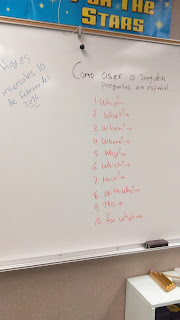 FOR THE
STARS
Hoy es
miercoles 10
de febrero del
2016
Como user o
preguntas en espanol
1 Who?→
2 What?→
3 When?→
4 Where?→
5 Why?→
6 Which?→
7 How?→
8 With who?→
9 This→
10. for what→